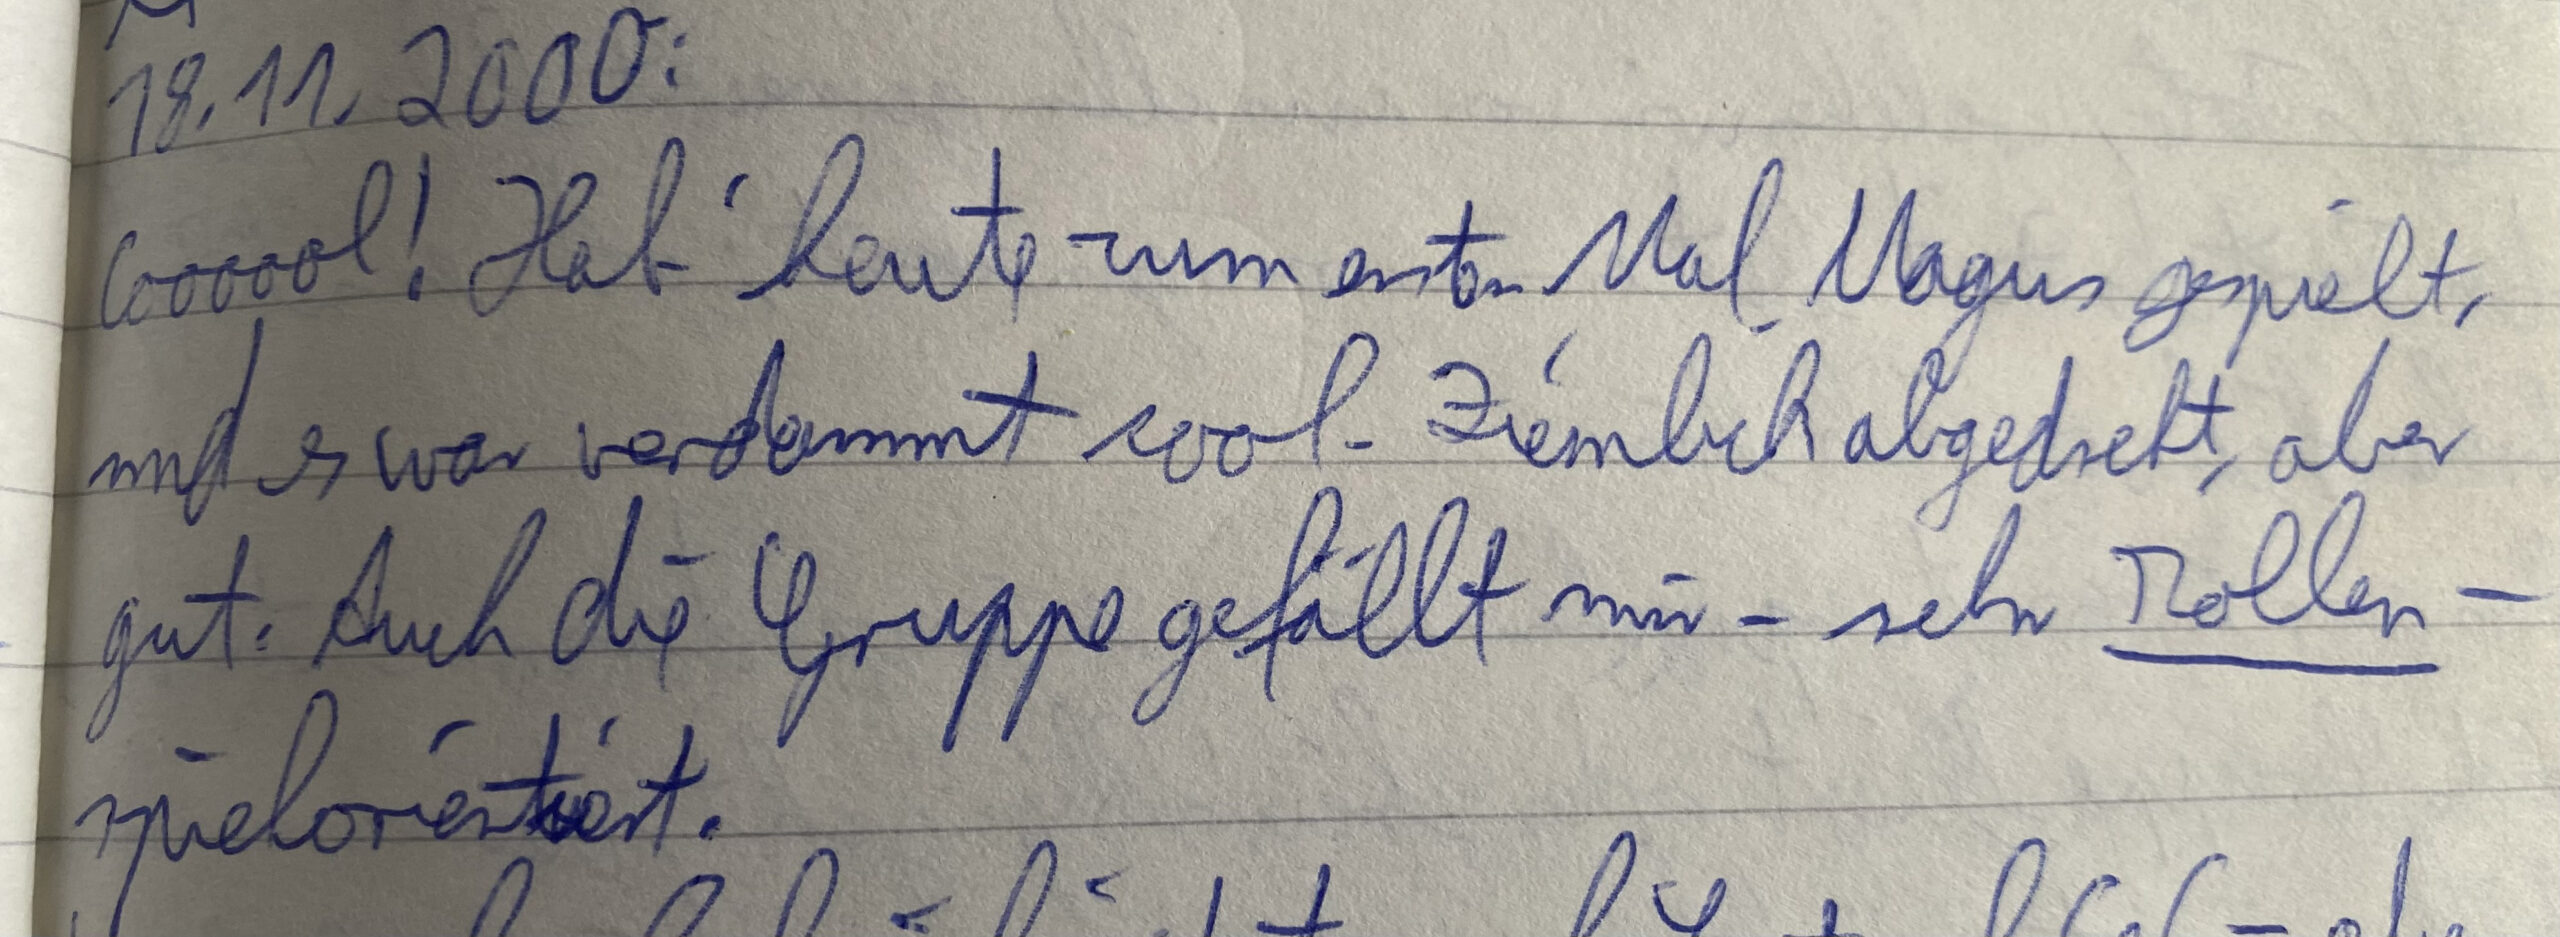 18.11.2000:
Cooooool! Hab' heute zum ersten Mal Magus gespielt,
und es war verdammt cool. Ziemlich abgedreht, aber
gut. Auch die Gruppe gefällt mir – sehr Rollen-
spielorientiert.